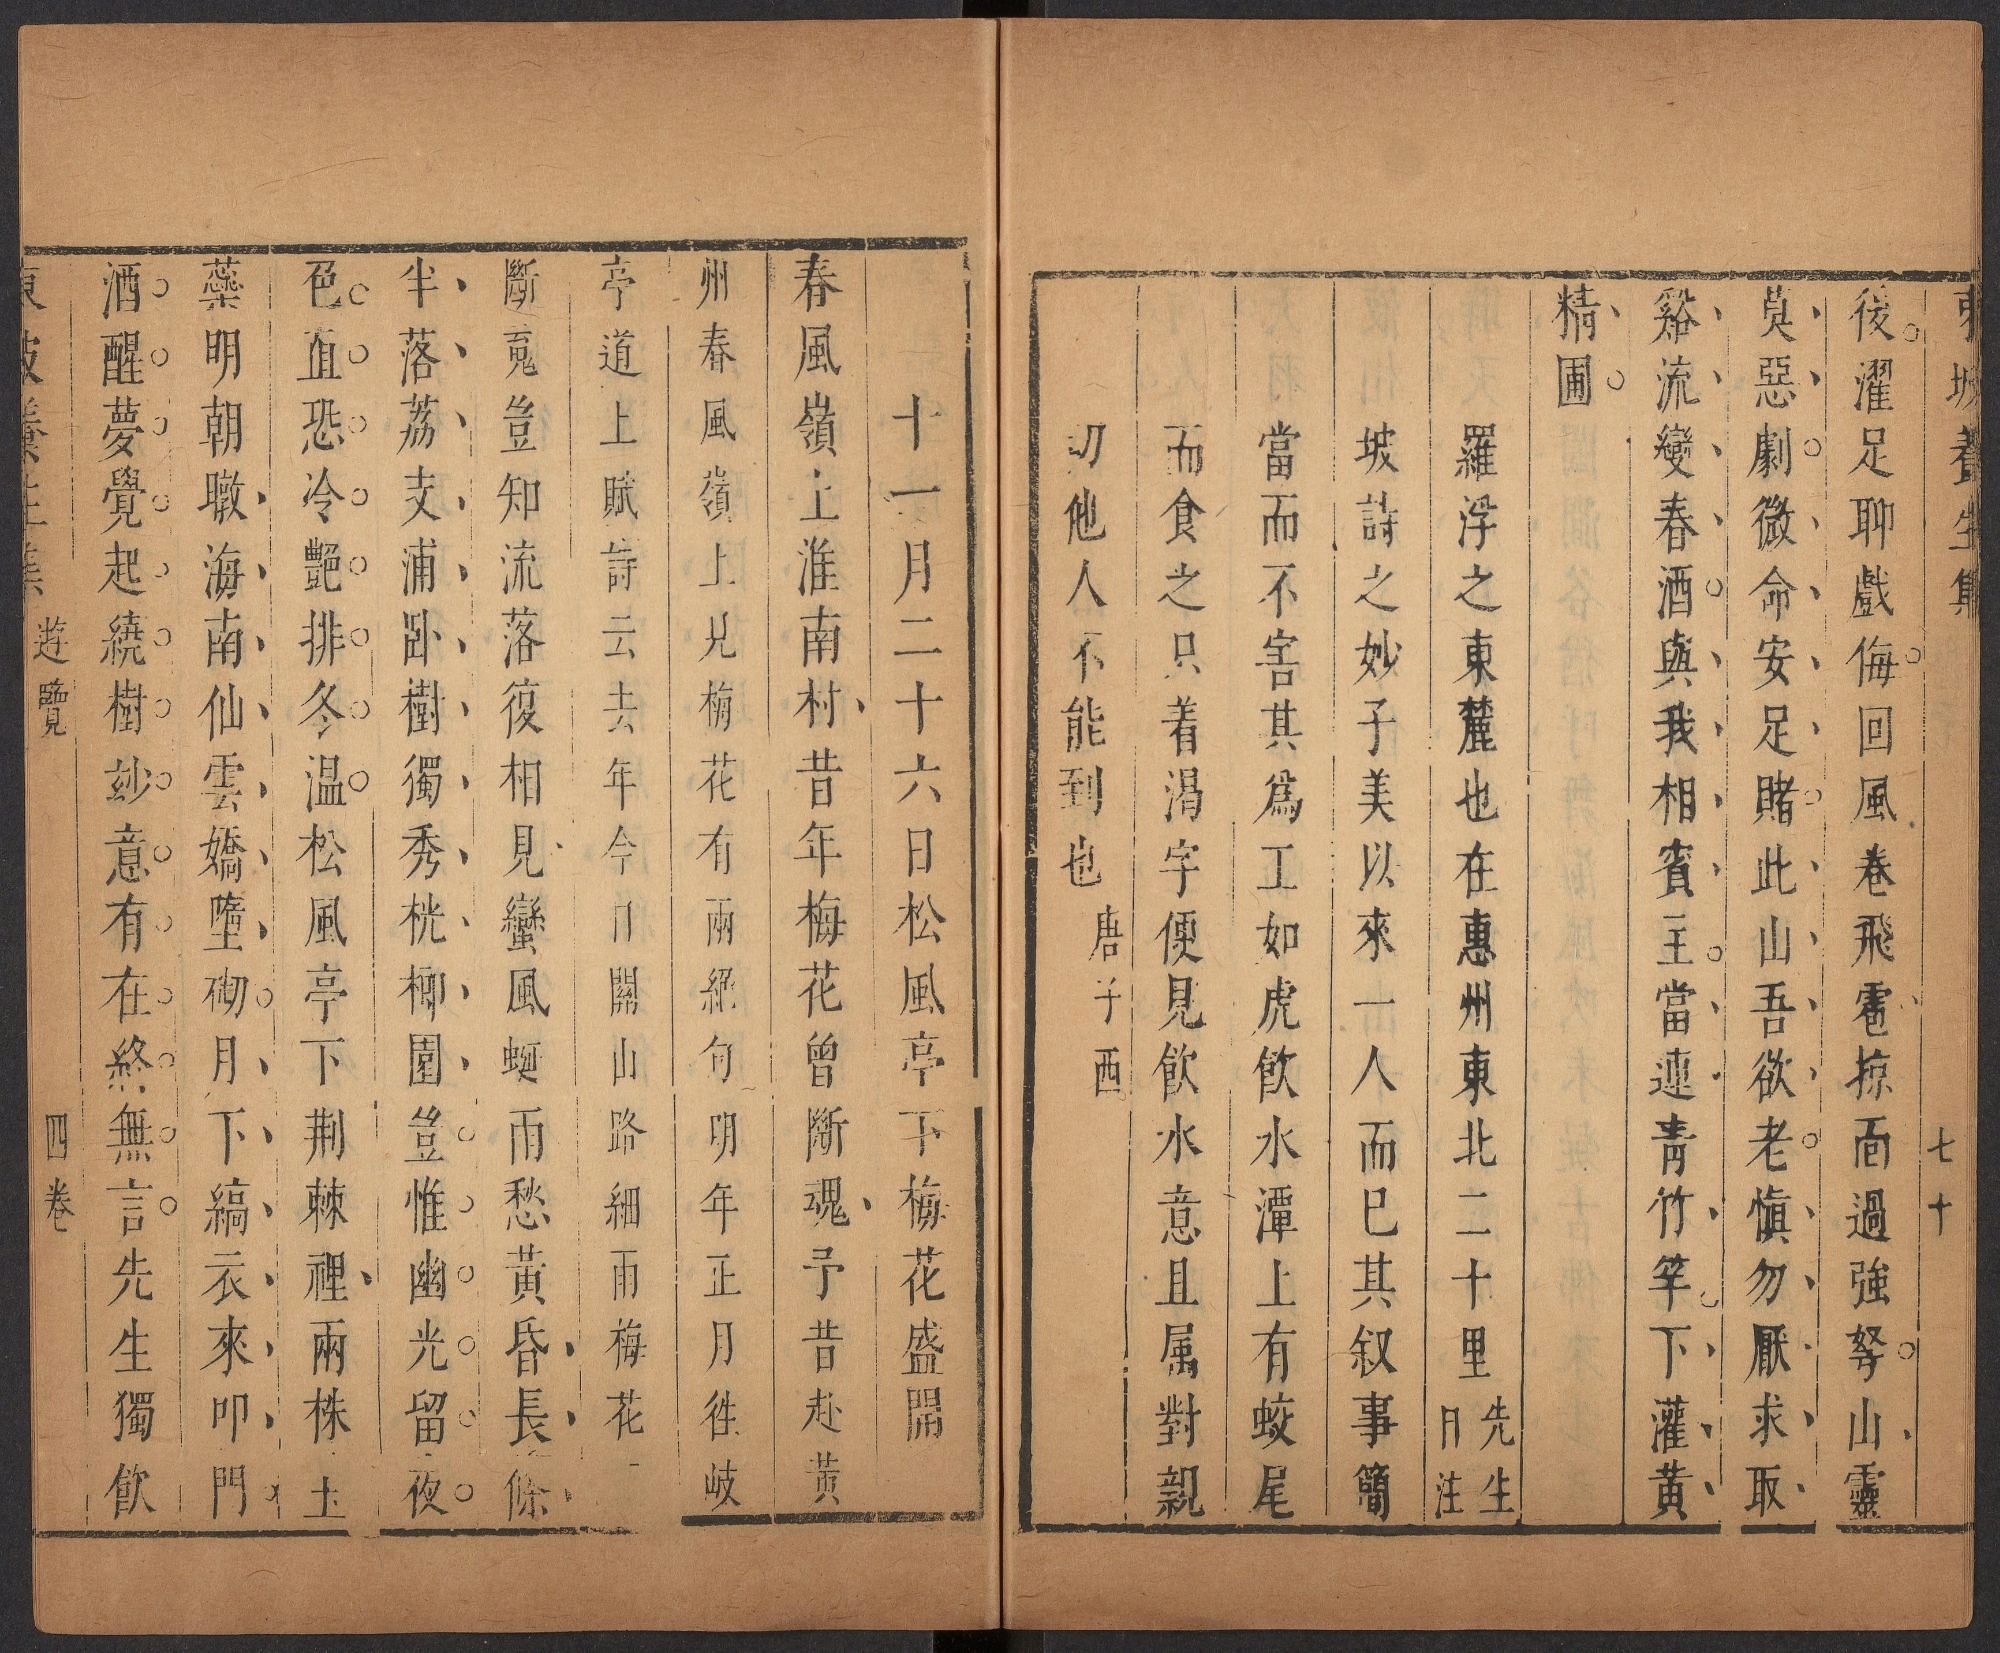 東坡養生集
七十
後濯足聊戲侮回風卷飛雹掠面過強弩山靈
莫惡劇微命安足賭此山吾欲老慎勿厭求取
谿流變春酒與我相賓主當連青竹竿下灌黃
精圃
羅浮之東麓也在惠州東北二十里先生自注
坡詩之妙子美以來一人而已其叙事簡
當而不害其爲工如虎飲水潭上有蛟尾
而食之只着渴字便見飲水意且属對親
切他人不能到也 唐子西
十一月二十六日松風亭下梅花盛開
春風嶺上淮南村昔年梅花曾斷魂予昔赴黃
州春風嶺上見梅花有兩絕句明年正月往岐
亭道上賦詩云去年今日關山路細雨梅花一
斷䰟豈知流落復相見蠻風蜒雨愁黃昏長條
半落荔支浦卧樹獨秀桄榔園豈惟幽光留夜
色直恐冷艷排冬温松風亭下荆棘裡兩株玉
蘂明朝暾海南仙雲嬌墮砌月下縞衣來叩門
酒醒夢覺起繞樹玅意有在終無言先生獨飲
東坡養生集 遊覽 四卷